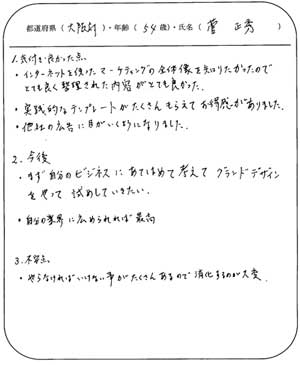 都道府県（大阪府）・年齢（54歳）・氏名（菅 正秀）
1. 気付き・良かった点。
・インターネットを使ったマーケティングの全体像を知りたかったので
とても良く整理された内容がとても良かった。
・実践的なテンプレートがたくさんもらえてお得感がありました。
・他社の広告に目がいくようになりました。
2. 今後
・まず自分のビジネスにあてはめて考えてグランドデザイン
をやって試めしていきたい。
・自分の業界に広められれば最高
3. 不安点。
・やらなければいけない事がたくさんあるので消化するのが大変。